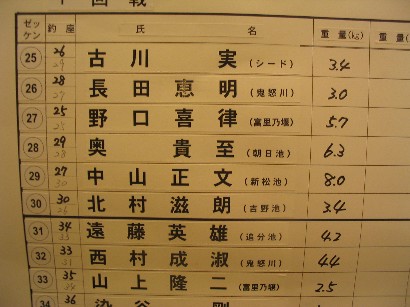 ゼッケン 釣座 氏 名 重量(kg) 重量(
25 26 古川 実 (シード) 3.4
26 28 長田恵明 (鬼怒川) 3.0
27 25 野口喜律 (富里乃堰) 5.7
28 29 奥 貴至 (朝日池) 6.3
29 27 中山正文 (新松池) 8.0
30 30 北村滋朗 (吉野池) 3.4
31 34 遠藤英雄 (追分池) 4.2
32 33 西村成淑 (鬼怒川) 4.4
33 35 山上隆二 (富里乃堰) 2.5
36